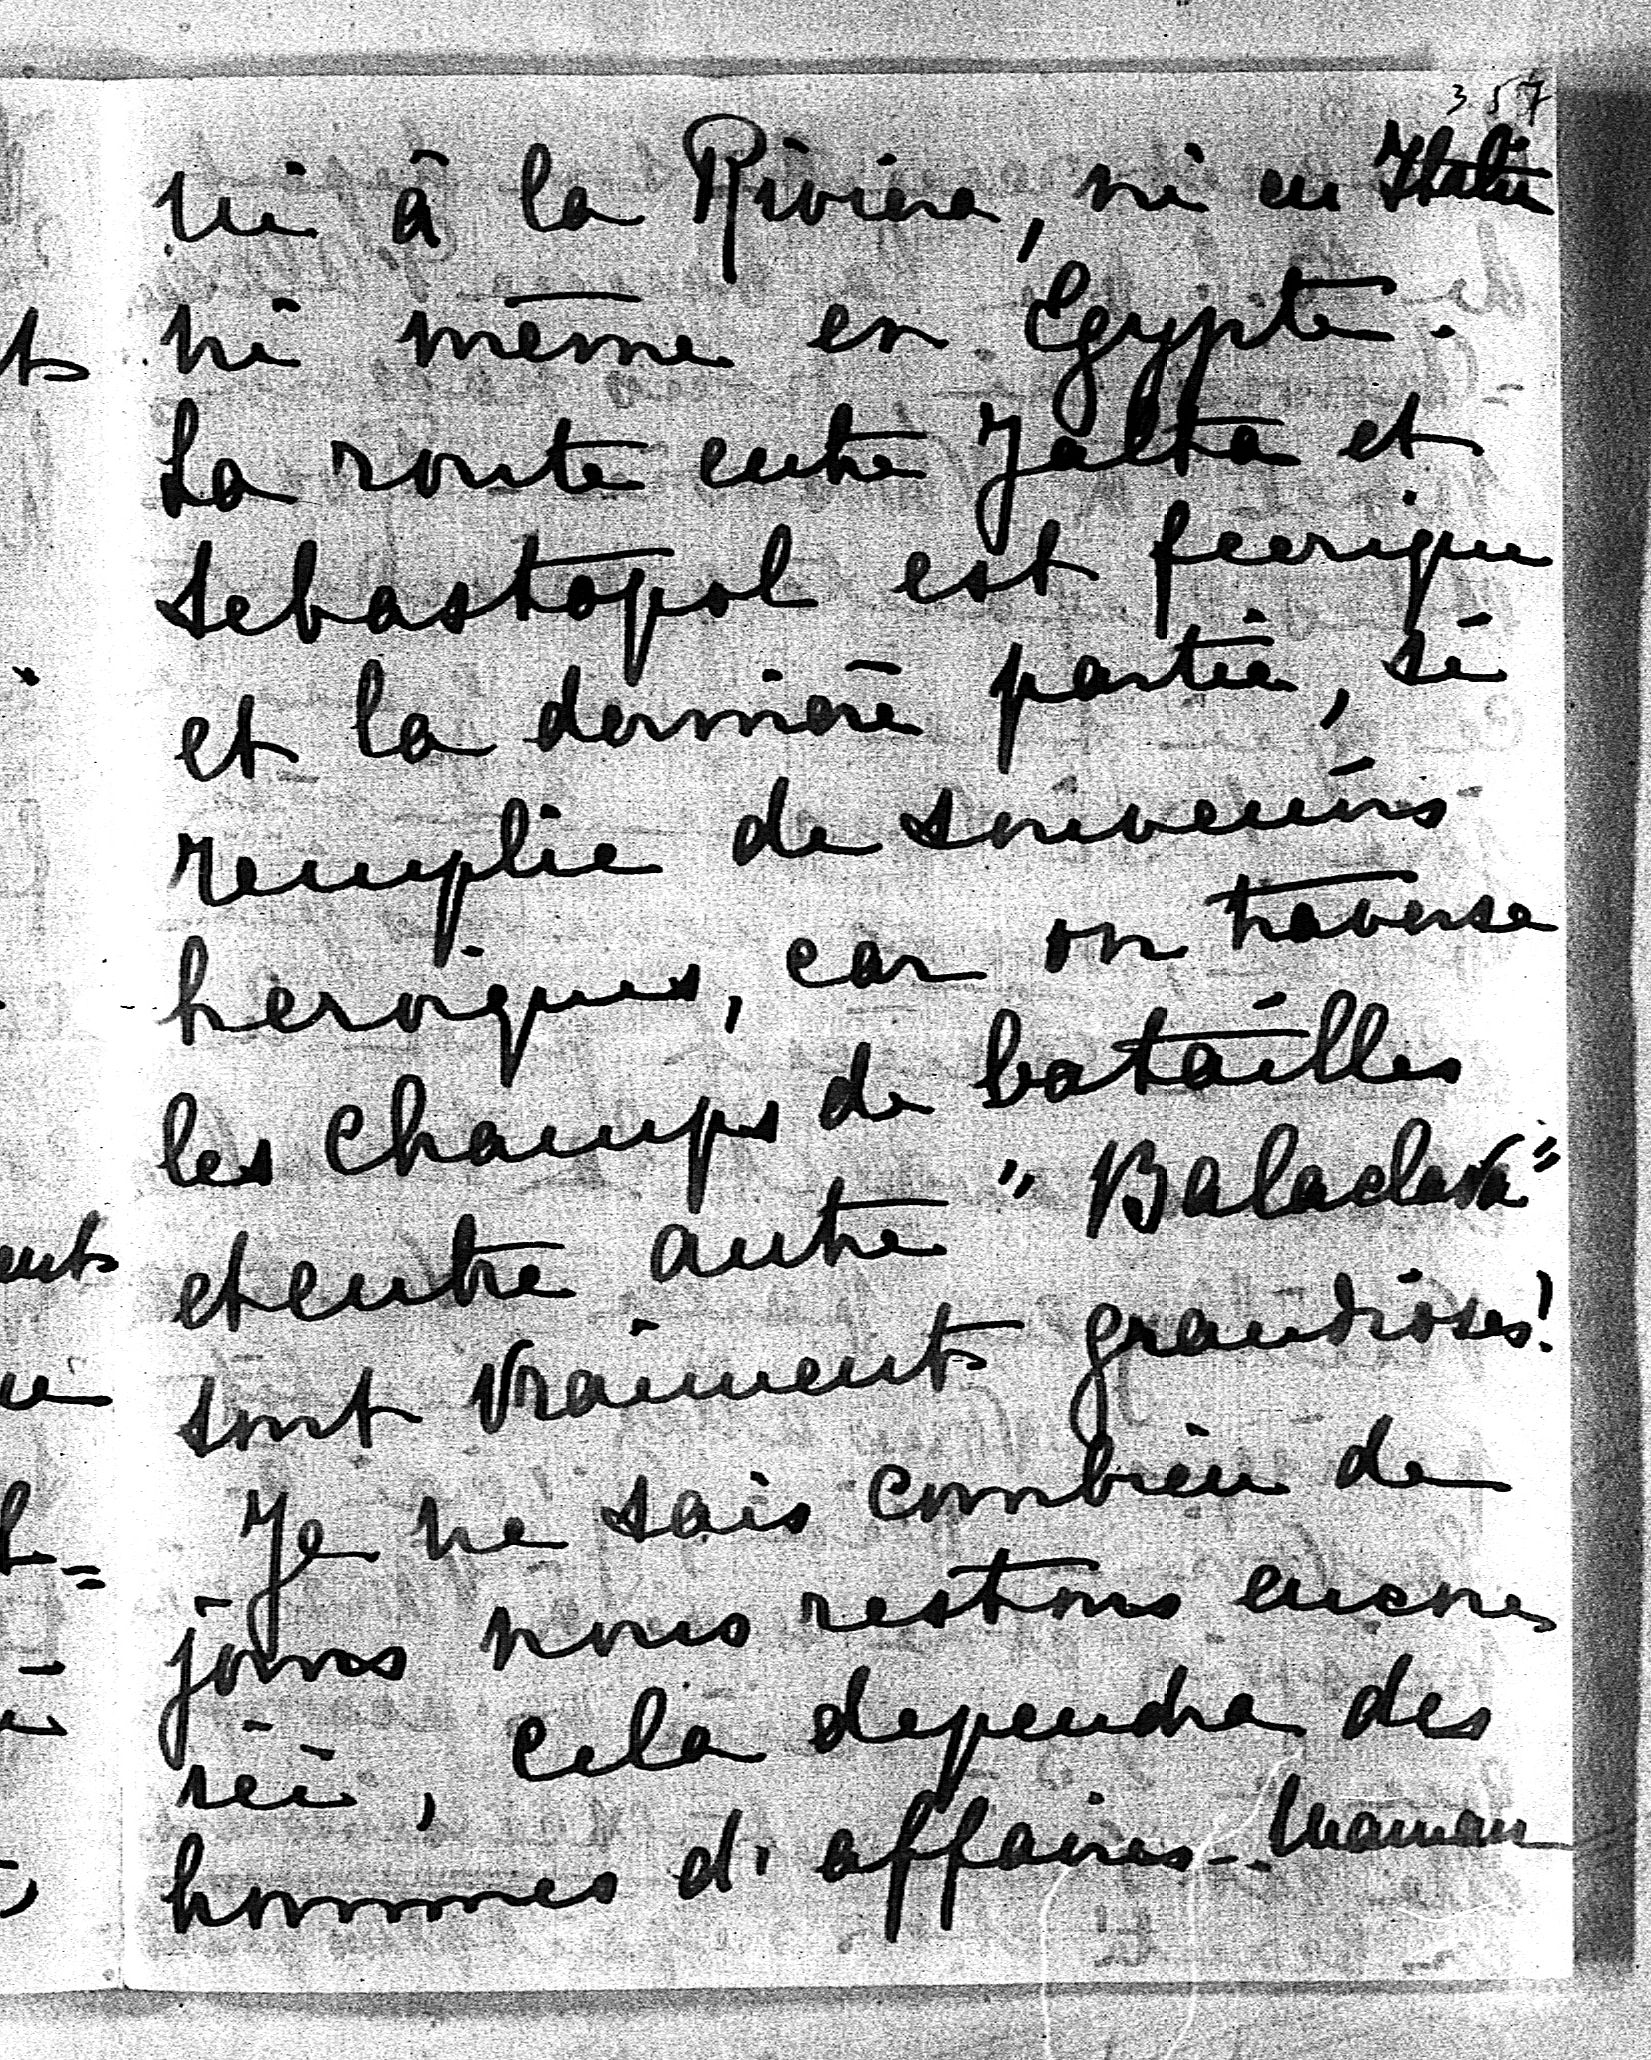 357
ni à la Riviera, ni en Italie
ni même en Egypte.
La route entre Jalta et
Sebastopol est feerique
et la dernière partie, si
remplie de souvenirs
heroiques, car on traverse
les champs de batailles
et entre autre "Balaclava"
sont vraiment grandioses!
Je ne sais combien de
jours nous restons encore
ici, cela dependra des
hommes d'affaires. Maman